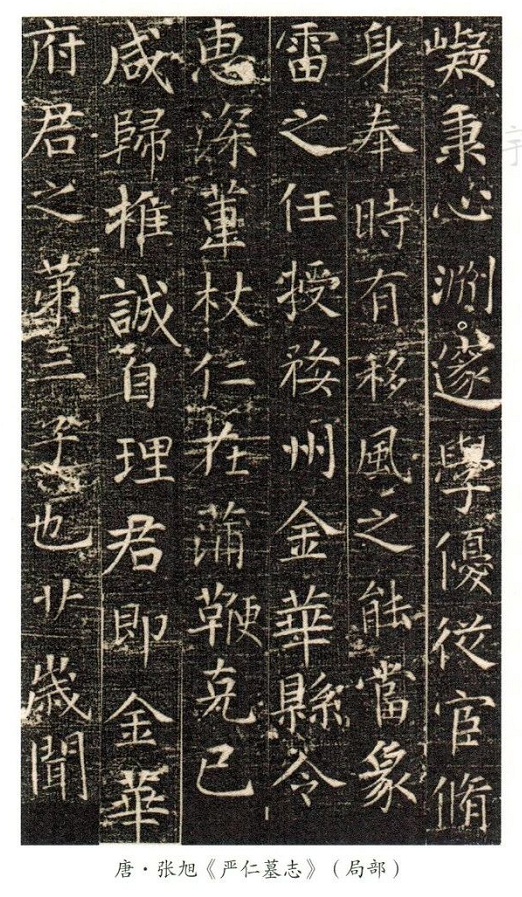 嶷秉心渊邃學優從宦脩
身奉時有移風之能當象
雷之任授婺州金華縣令
惠深董杖仁在蒲鞭克己
咸歸推誠自理君即金華
府君之苐三子也廿歲聞
唐·张旭《严仁墓志》（局部）